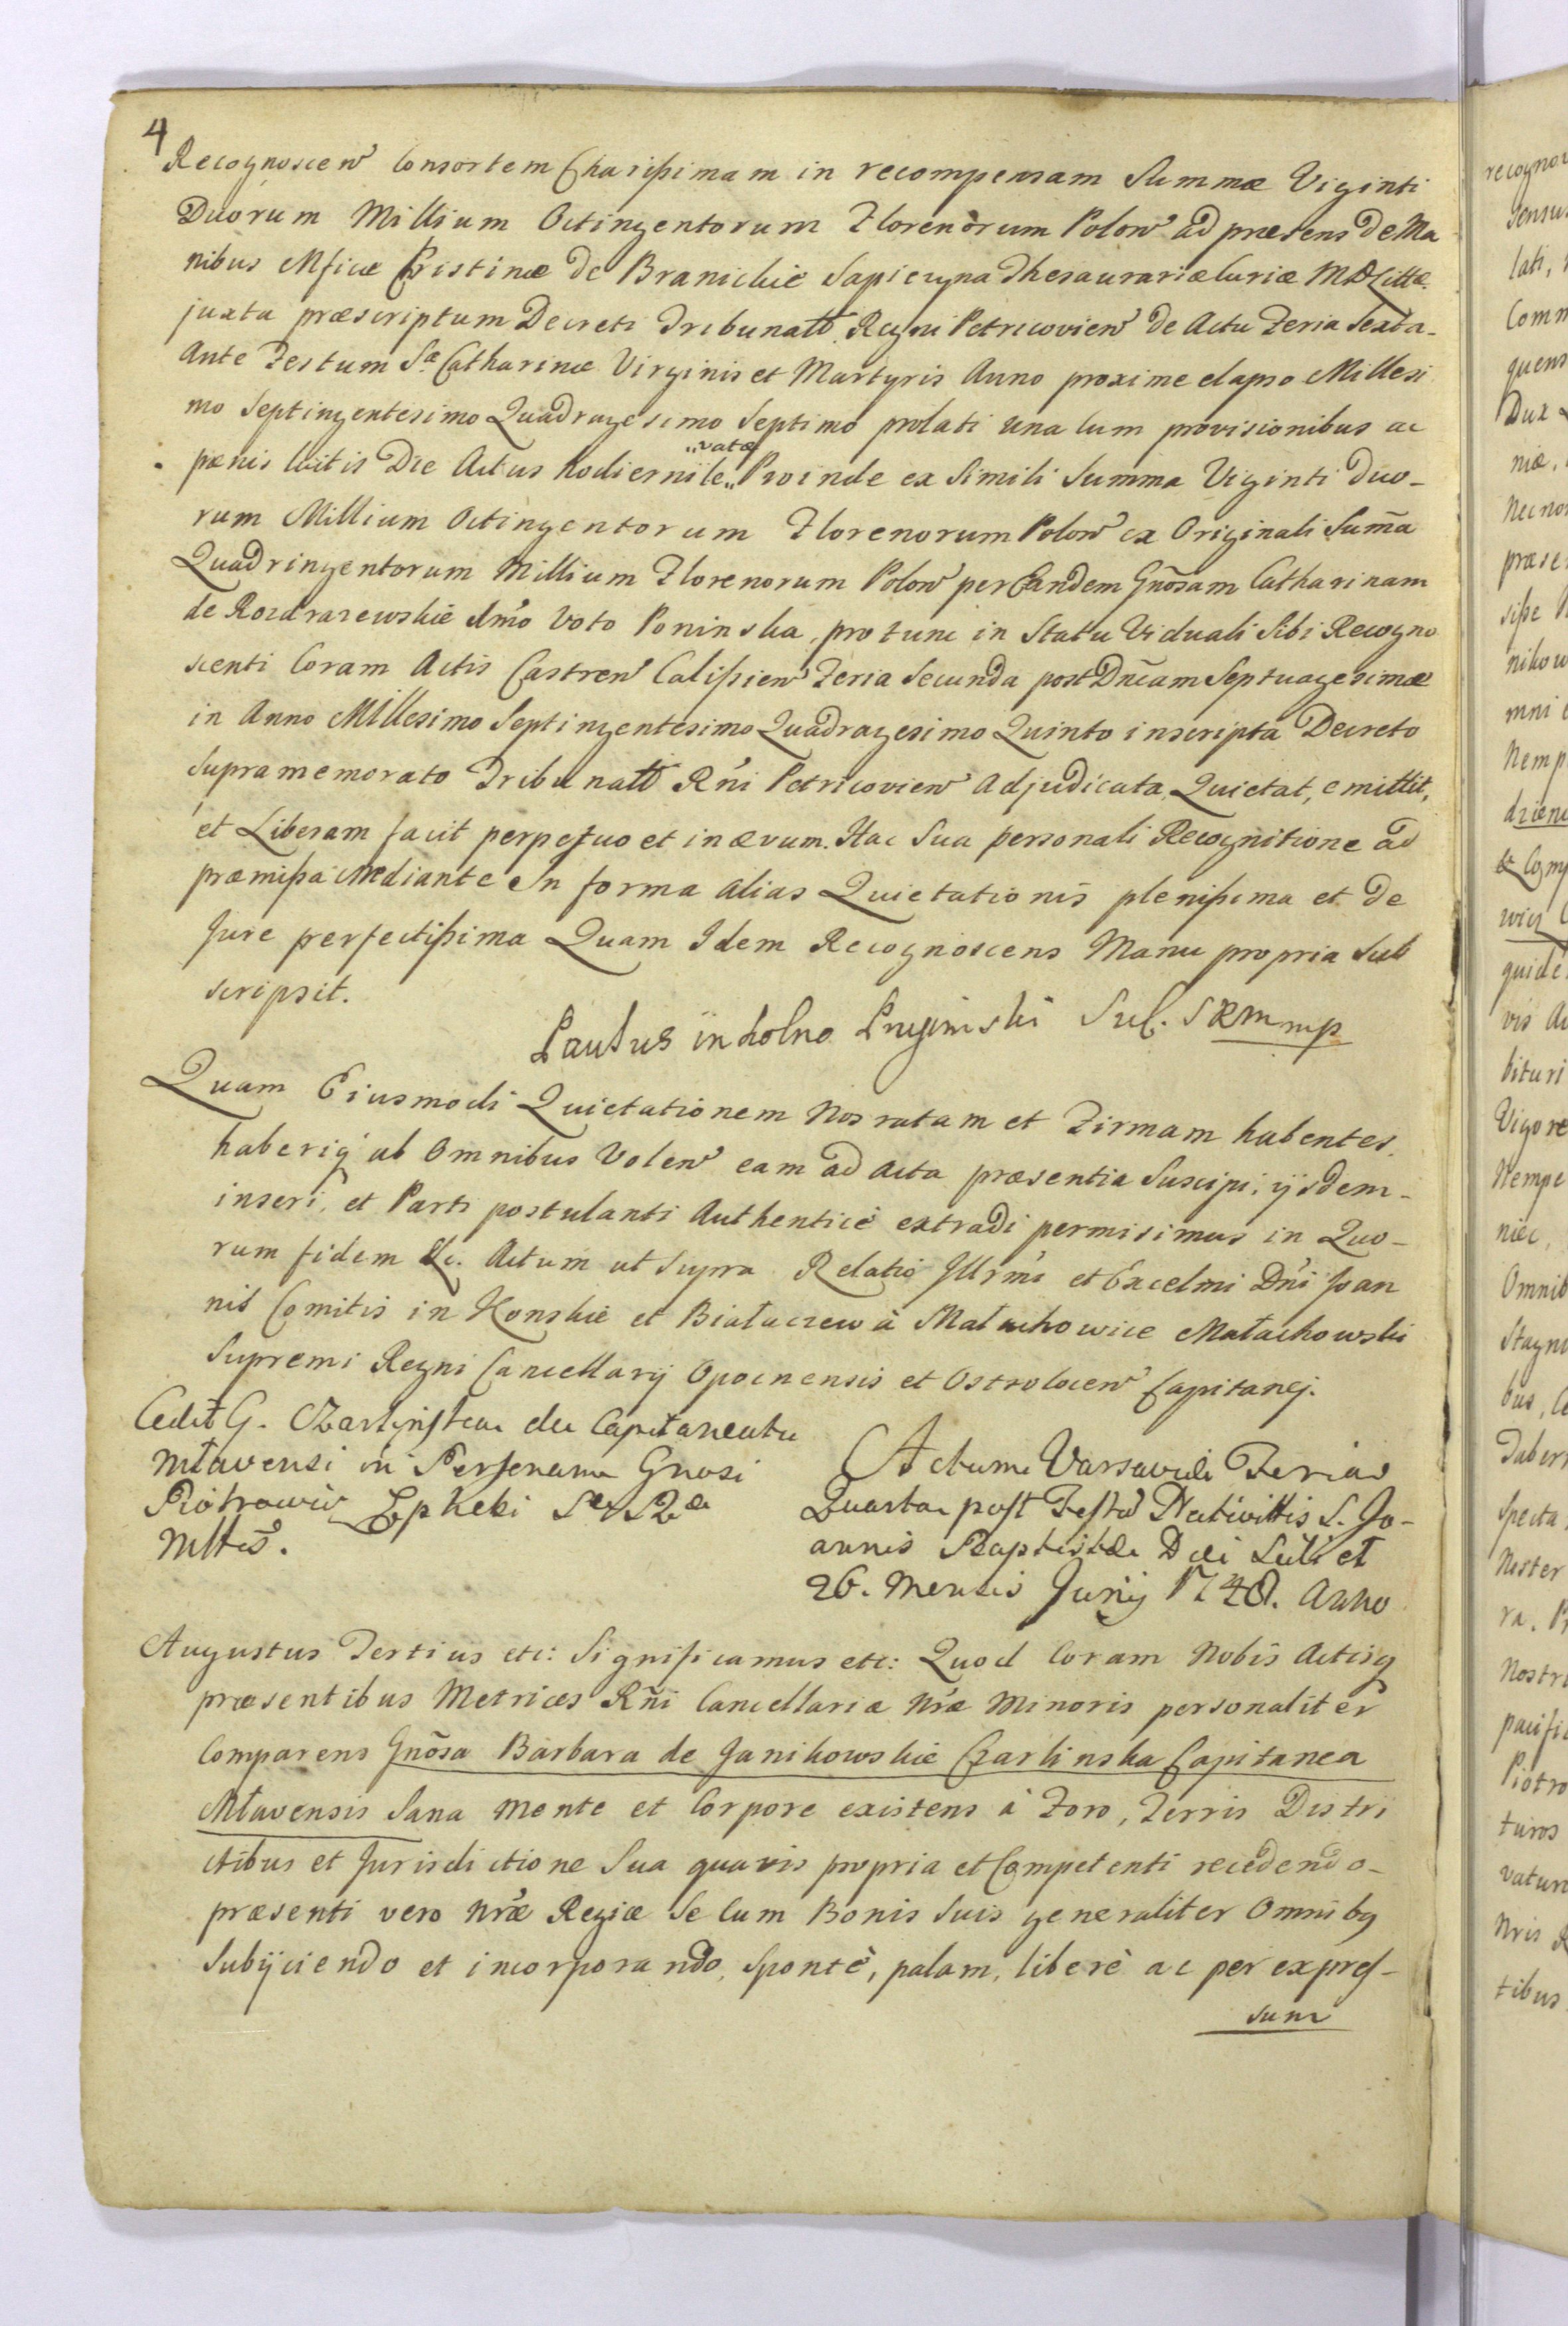 4
Recognoscen Consortem Charissimam in recompensam Summæ Viginti
Duorum Millium Octingentorum Florenorum Polon ad præsens de Ma
nibus Mficæ Cristinæ de Branickie Sapieżyna Thesaurariæ Curiæ MDLittæ
juxta præscriptum Decreti Tribunalt. Regni Petricovien de Actu Feria Sexta-
Ante Festum Sæ Catharinæ Virginis et Martyris Anno proxime elapso Millesi
mo Septingentesimo Quadragesimo Septimo prolati una cum provisionibus ac
pænis luitis Die Actus hodierni le„ „vatæ Proinde ex Simili Summa Viginti Duo-
rum Millium Octingentorum Florenorum Polon ex Originali Sum̃a
Quadringentorum Millium Florenorum Polon per Eandem Gnõsam Catharinam
de Rozdrazewskie Imo Voto Poninska, pro tunc in Statu Viduali Sibi Recogno
scenti Coram Actis Castren Calissien Feria Secunda post Dnĩcam Septuagesimæ
in Anno Millesimo Septingentesimo Quadragesimo Quinto inscripta Decreto
Supramemorato Tribunalt Rni Petricovien Adjudicata, Quietat, emittit,
et Liberam facit perpetuo et in ævum. Hac Sua personali Recognitione ad
præmissa Mediante In forma alias Quietationis plenissima et de
Jure perfectissima Quam Idem Recognoscens Manu propria Sub
scripsit.
Paulus in kolno SRM mp
Quam Eiusmodi Quietationem Nos ratam et Firmam habentes.
haberiq ab Omnibus Volen eam ad Acta præsentia Suscipi, ijsdem-
inseri, et Parti postulanti Authenticè extradi permisimus in Quo-
rum fidem &c. Actum ut Supra Relatio Illrmi et Excelmi Dni Joan
nis Comitis in Konskie et Białaczew à Małachowice Małachowski
Supremi Regni Cancellarij Opocnensis et Ostrolocen Capitanej.
Cedit G. Czarlinska de Capitaneatu
Mlavensi in Personam Gnosi
Piotrowicz
Mltis.
Actum Varsaviæ Feria
Quarta post Festu Nativittis S. Jo-
annis Baptistæ Dei
26. Mensis Junij 1748. Anno
Augustus Tertius etc: Significamus etc: Quod Coram Nobis Actisq
præsentibus Metrices Rñi Cancellariæ Nræ Minoris personaliter
Comparens Gnõsa Barbara de Janikowskie Czarlinska Capitanea
Mławensis Sana mente et Corpore existens à Foro, Terris Distri
ctibus et Jurisdictione Sua quavis propria et Competenti recedendo-
præsenti vero Nræ Regiæ Se Cum Bonis Suis generaliter Omnibq
Subijciendo et incorporando, Spontè, palam, liberè ac per expres-
sum
recognov
Sensu
lati,
Comm
quens
Dux
niæ,
Necnon
præse
nikow
mni
Nemp
dzien
& Comp
wicz
quide
vis Au
bituri
Vigore
Nempe
niec,
Omnib
Stagni
bus,
Tabern
Specta
Noster
ra, Pr
Nostri
pacific
Piotro
turos
vatur
Nris R
tibus